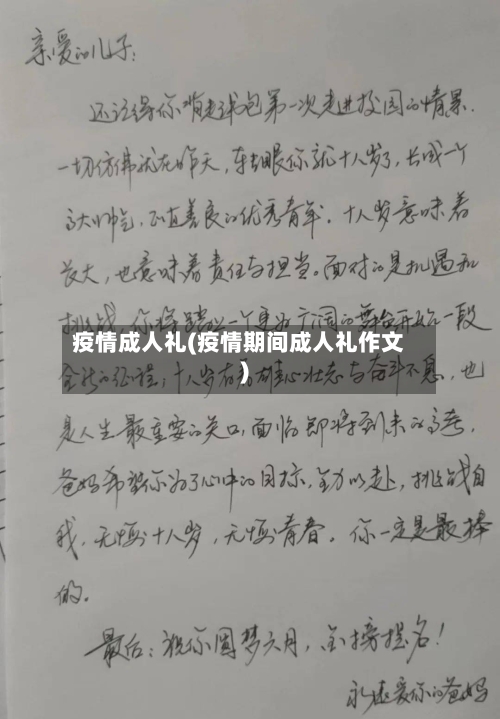 亲爱的儿子:
还记得你背起书包第一次走进校园的情景.
一切仿佛就在昨天,转眼你就十八岁了,长成一个
高大帅气、正直善良的优秀青年,十八岁意味着
长大,也意味着责任与担当。面对的是机遇和
挑战,你将踏上一个更为广阔的舞台开始一段
疫情成人礼(疫情期间成人礼作文
)
全新的征程,十八岁有雄心壮志与奋斗不息,也
是人生最重要的关口,面临即将到来的高考,
爸妈希望你为了心中的目标,全力以赴,挑战自
我,无悔十八岁,无悔青春。你一定是最棒
的。
最后:祝你圆梦六月,金榜提名!
永远爱你的爸妈